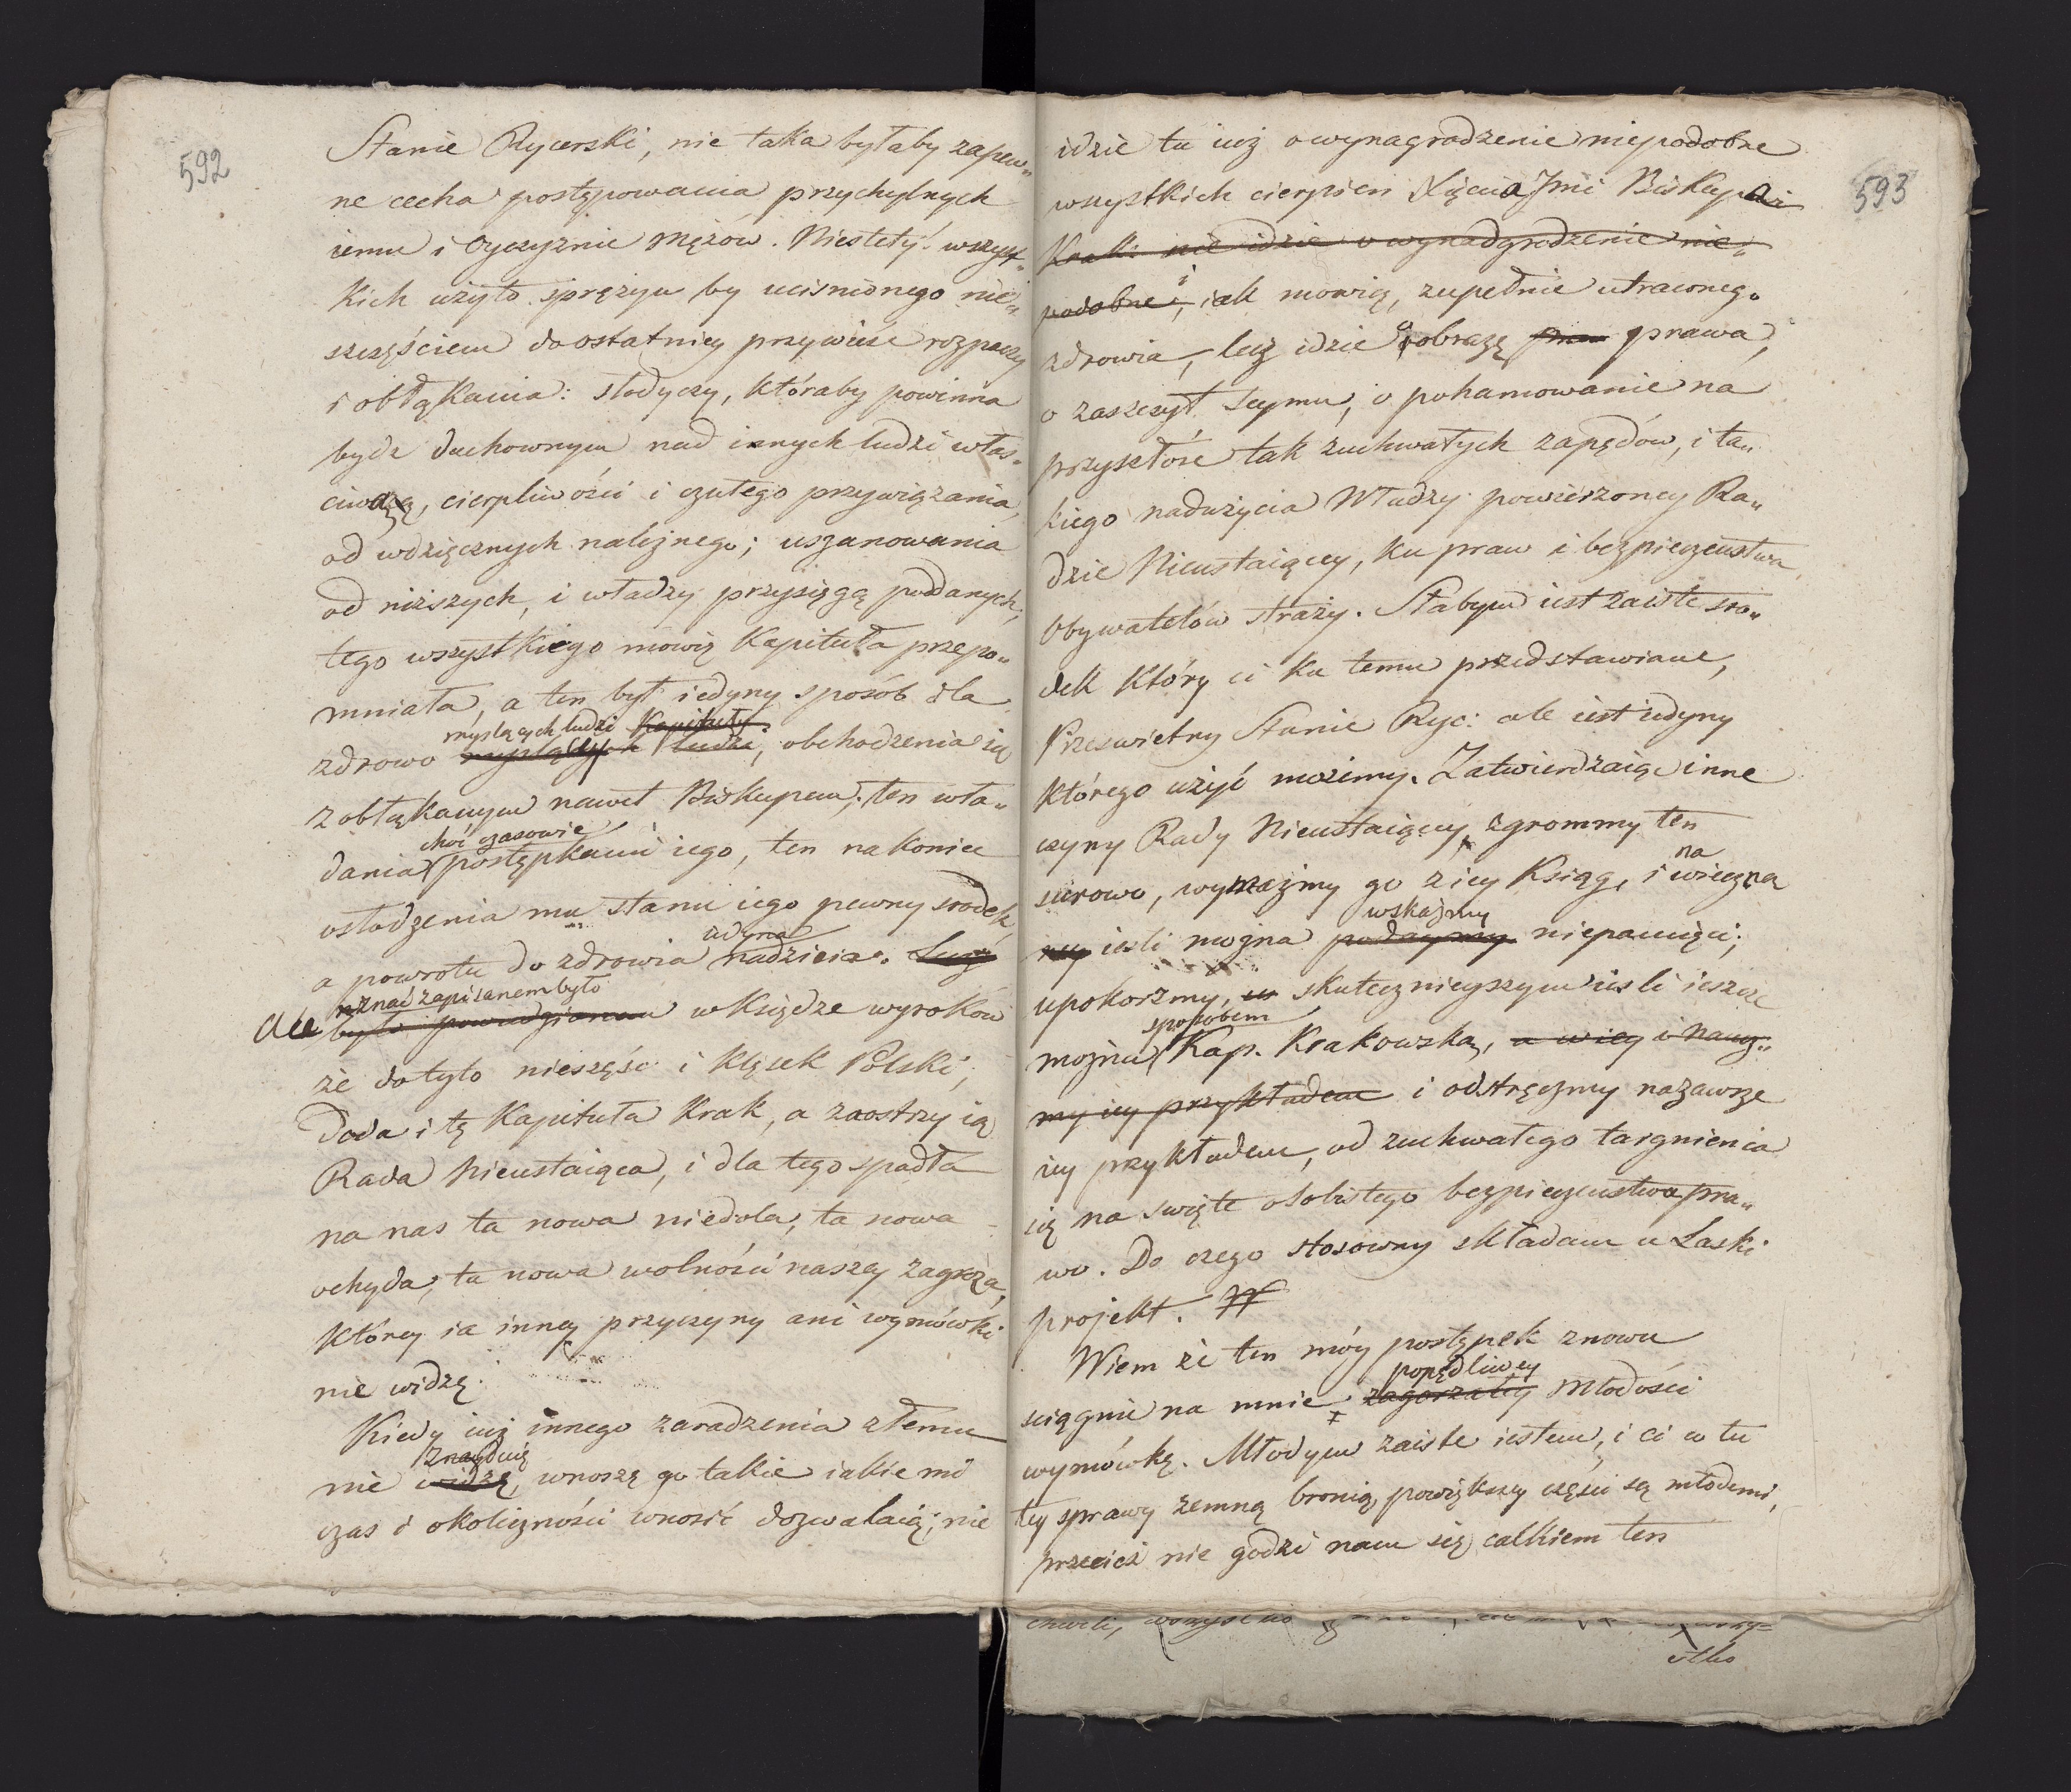 592
Stanie Rycerski, nie taka byłaby zapew„
ne cecha postępowania przychylnych
iemu i Oyczyznie mężow. Niestety! wszyst„
kich użyto sprężyn by ucisnionego nie„
szczęściem do ostatniey przywieść rozpaczy
i obłąkania: słodyczy, któraby powinna
bydz duchownym nad innych ludzi włas„
ciwszą, cierpliwości i czułego przywiązania,
od wdzięcznych należnego; uszanowania
od niższych, i władzy przysięgą poddanych,
tego wszystkiego mowię Kapituła przepo„
mniała, a ten był iedyny sposób dla
myslących ludzi Kapituły
zdrowo myslących ludzi, obchodzenia się
z obłąkanym nawet Biskupem; ten wła„
choć czasowie
dania postępkami iego, ten nakoniec
osłodzenia mu stanu iego pewny srodek
iedyna
a powrotu do zdrowia nadzieia. Lecz
znać zapisanem było
Ale było powiedzianem w Księdze wyroków
że do tylo nieszczęść i klęsek Polski,
Doda i tę Kapituła Krak, a zaostrzy ią
Rada Nieustaiąca, i dla tego spadła
na nas ta nowa niedola, ta nowa
ochyda, ta nowa wolności naszey zagroza,
którey ia inney przyczyny ani wymówki
nie widzę.
Kiedy iuż innego zaradzenia złemu
znayduię
nie widzę, wnoszę go takie iakie mi
czas i okoliczności wnosić dozwalaią; nie
593
idzie tu iuż o wynagrodzenie niepodobne
wszystkich cierpien Xięcia Jmci Biskupa
Krak: nie idzie o wynadgrodzenie nie„
podobne, i iak mowię, zupełnie utraconego
zdrowia, lecz idzie o obrazę praw prawa,
o zaszczyt Seymu, o pohamowanie na
przyszłość tak zuchwałych zapędów, i ta„
kiego nadużycia Władzy powierzoney Ra„
dzie Nieustaiącey, ku praw i bezpieczeństwa
Obywatelów straży. Słabym iest zaiste sro„
dek który ci ku temu przedstawiam,
Przeswietny Stanie Ryc: ale iest iedyny
którego użyć możemy. Zatwierdzaiąc inne
czyny Rady Nieustaiącey, zgrommy ten
surowo, wymażmy go z iey Ksiąg, i na wieczną
wskażmy
iesli można podaymy niepamięci;
upokorzmy, skutecznieyszym iesli ieszcze
sposobem
można Kap. Krakowską, a wiey i naucz„
my iey przykładem i odstręczmy nazawsze
iey przykładem, od zuchwałego targnienia
się na święte osobistego bezpieczeństwa pra„
wo. Do czego stosowny składam u Laski
projekt. #
Wiem że ten móy postępek znowu
popędliwey
sciągnie na mnie zagorzałey młodości
wymówkę. Młodym zaiste iestem, i ci co tu
tey sprawy zemną bronią powiększey części są młodemi,
przecież nie godzi nam się całkiem ten